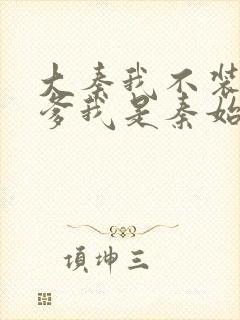 大秦我不装
爹我是秦始
項坤三